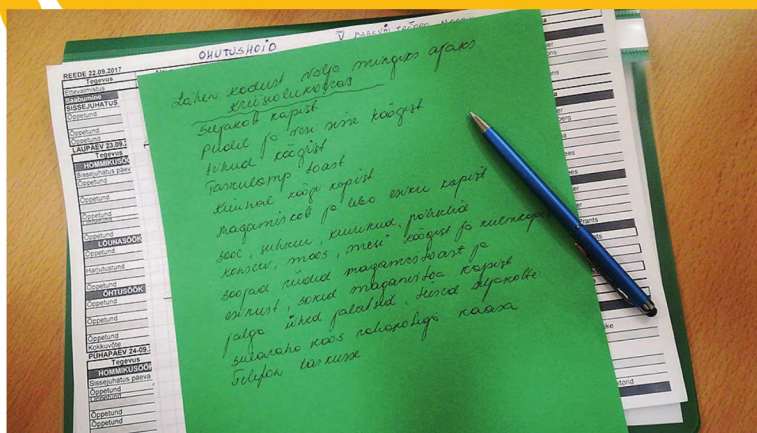 OHUTUSHOID
REEDE 22.09.2017
Tegevus
Ettevalmistus
Saabumine
SISSEJUHATUS
Õppetund
Õppetund
Õppetund
LAUPÄEV 23.09.
Tegevus
HOMMIKUSÖÖ
Sissejuhatus päev
Õppetund
Õppetund
Õppetund
LÕUNASÖÖK
Õppetund
Harjutustund
Õppetund
ÕHTUSÖÖK
Õppetund
Õppetund
Õppetund
Kokkuvõte
PÜHAPÄEV 24.09.
Tegevus
HOMMIKUSÖÖ
Sissejuhatus päeva
Õppetund
Õppetund
Õppetund
Õppetund
Lähen kodust välja mingiks ajaks
kriisiolukorras
seljakott kapist
pudel ja vesi sisse köögist
tikud köögist
Taskulamp toast
küünal köögi kapist
magamiskott ja leko esiku kapist
sool, suhkur, kuivikud, pähklid
konserv, moos, mesi köögist ja külmkapist
soojad riided magamistoast ja
esikust, sokid magamistoa kapist
jalga ühed jalatsid, teised seljakotti
sularaha koos rahakotiga kaasa
Telefon taskusse